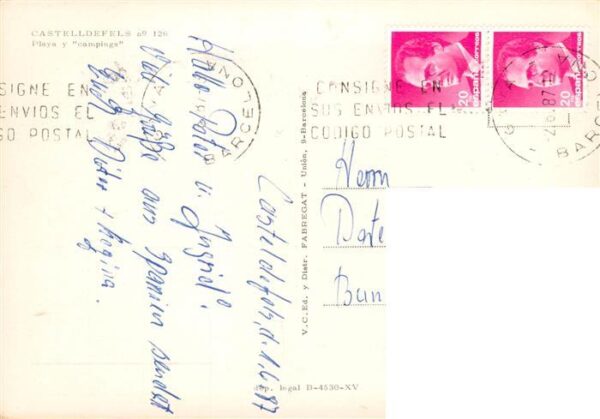 CASTELLDEFELS nº 126
Playa y "campings"
Castelldefels, d. 1.6.87
Hallo Peter u. Ingrid!
Viele Grüße aus Spanien sendet
Dieter + Regina.
CONSIGNE EN
SUS ENVIOS EL
CODIGO POSTAL
BARCELONA
SIGNE EN
ENVIOS EL
GO POSTAL
BARCELONA
20
españa
CORREOS
20
españa
CORREOS
V. C. Ed. y Distr. FABREGAT - Unión, 9-Barcelona
Herrn
Bun
dep. legal B-4530-XV